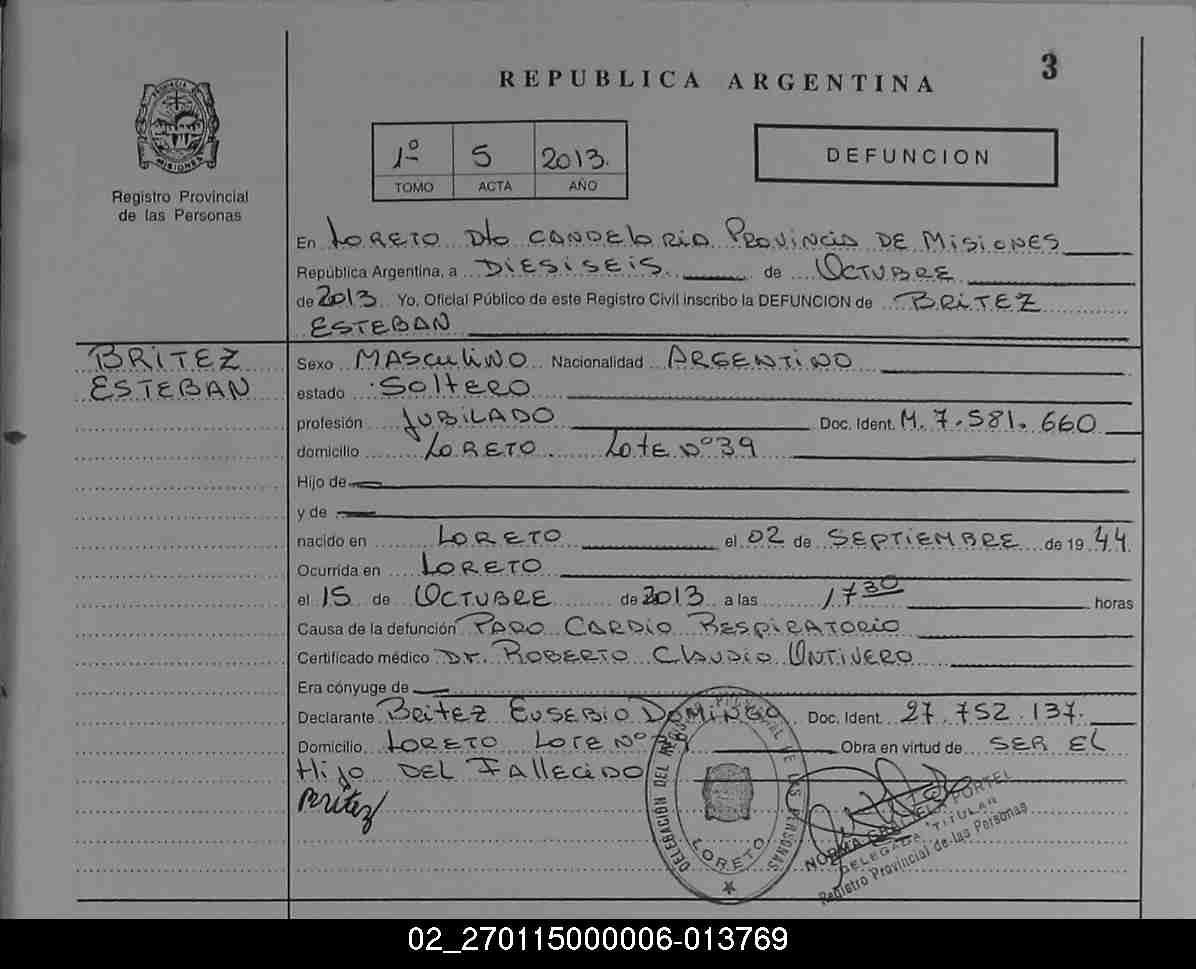 3
REPUBLICA ARGENTINA
PROVINCIA DE MISIONES
Registro Provincial
de las Personas
1º 5 2013.
TOMO ACTA AÑO
DEFUNCION
En LORETO Dto CANDELARIA PROVINCIA DE MISIONES
República Argentina, a DIESISEIS de OCTUBRE
de 2013 Yo, Oficial Público de este Registro Civil inscribo la DEFUNCION de BRITEZ
ESTEBAN
BRITEZ
ESTEBAN
Sexo MASCULINO Nacionalidad ARGENTINO
estado SOLTERO
profesión JUBILADO Doc. Ident. M. 7.581.660
domicilio LORETO LOTE Nº 39
Hijo de
y de
nacido en LORETO el 02 de SEPTIEMBRE de 19 44
Ocurrida en LORETO
el 15 de OCTUBRE de 2013 a las 17 30 horas
Causa de la defunción PARO CARDIO RESPIRATORIO
Certificado médico DR. ROBERTO CLAUDIO ONTIVERO
Era cónyuge de
Declarante BRITEZ EUSEBIO DOMINGO Doc. Ident. 27.752.137.
Domicilio LORETO LOTE Nº Obra en virtud de SER EL
HIJO DEL FALLECIDO
Britez
DELEGACIÓN DEL REGISTRO PROVINCIAL DE LAS PERSONAS
LORETO
NORMA GRACIELA PORTEL
DELEGADA TITULAR
Registro Provincial de las Personas
02_270115000006-013769